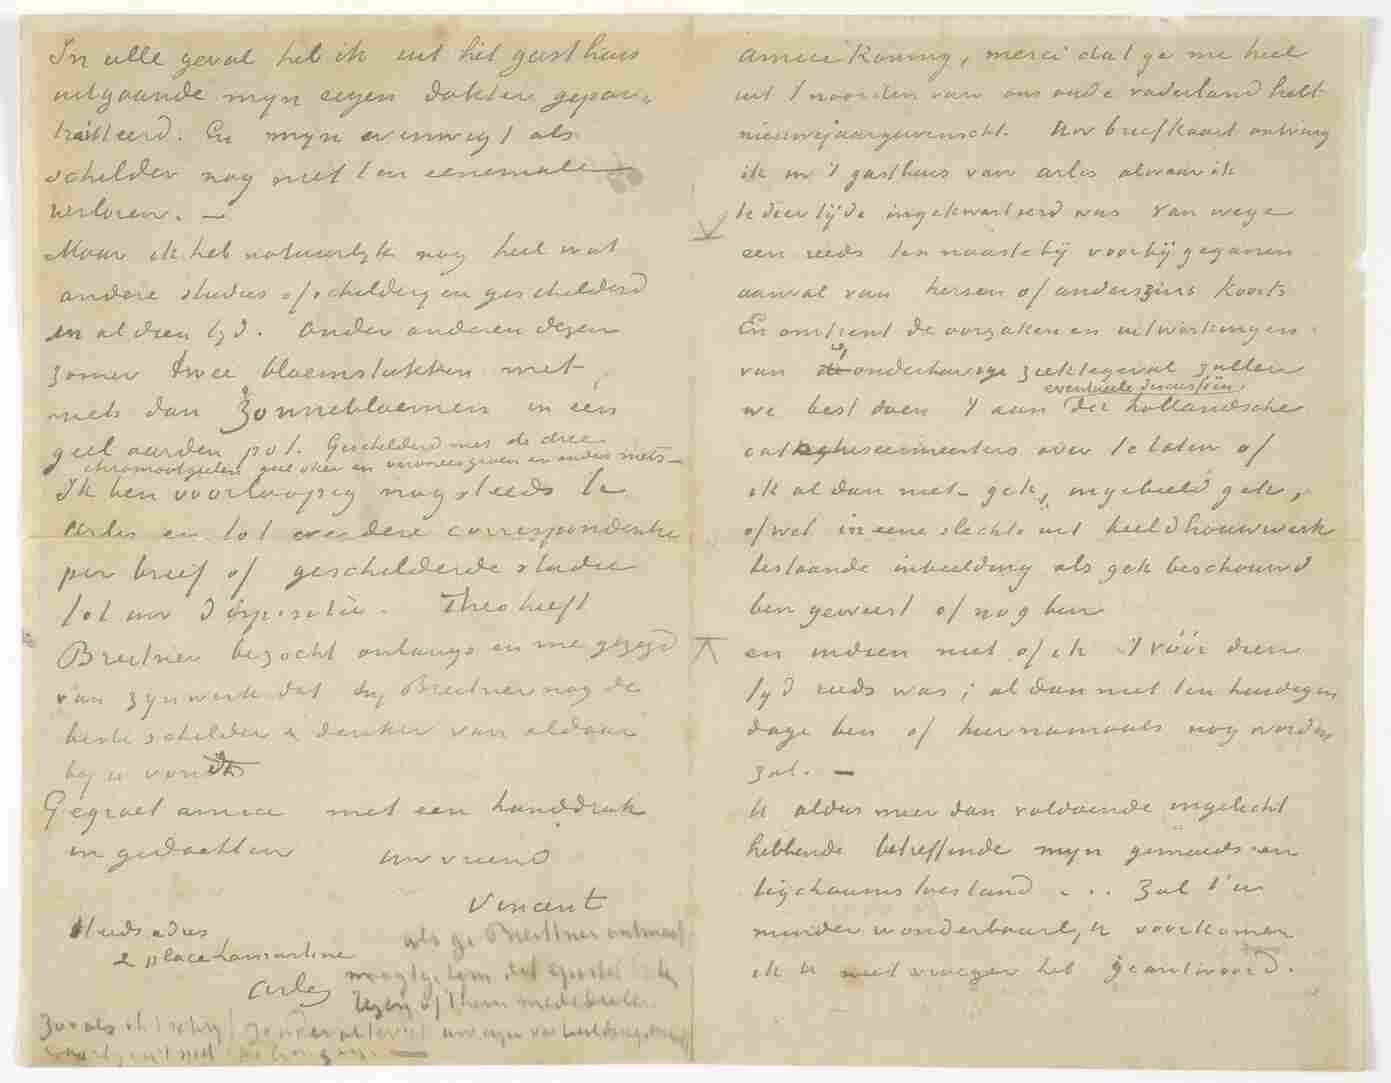 In alle geval heb ik uit het gasthuis
uitgaande myn eigen dokter gepor-
traiteerd. En myn evenwigt als
schilder nog niet ten eenemale
verloren. —
Maar ik heb natuurlyk nog heel wat
andere studies of schilderyen geschilderd
in al dien tyd. Onder anderen dezen
zomer twee bloemstukken met
niets dan Zonnebloemen in een
geel aarden pot. Geschilderd met de drie
chromaatgeelen, geel oker en veroneesgroen en anders niets —
Ik ben voorloopig nog steeds te
Arles en tot verdere correspondentie
per brief of geschilderde studie
tot uw dispositie. Theo heeft
Breitner bezocht onlangs en me gezegd
van zyn werk dat hy Breitner nog de
beste schilder & denker van aldaar
by u vond
Gegroet amice met een handdruk
in gedachten uw vriend
Vincent
Steeds adres
2 place Lamartine
Arles
als ge Breitner ontmoet
moogt ge hem dit gerust
lezen of hem mededeelen
zooals ik t schryf zonder
amice Koning, merci dat ge me heel
uit 't noorden van ons oude vaderland hebt
nieuwejaargewenscht. Uw briefkaart ontving
ik in 't gasthuis van Arles alwaar ik
te dier tyde ingekwartierd was van wege
een reeds ten naastebij voorbijgeganen
aanval van hersen of anderszins koorts
En omtrent de oorzaken en uitwerkingen
van de onderhavige ziektegeval zullen
we best doen 't aan eventueele discussiën der hollandsche
catechiseermeesters over te laten of
ik al dan niet gek, ingebeeld gek,
ofwel in eene slechts uit beeldhouwwerk
bestaande inbeelding als gek beschouwd
ben geweest of nog ben
en indien niet of ik 't vóór dien
tyd reeds was; al dan niet ten huidegen
dage ben of hiernamaals nog worden
zal. —
U aldus meer dan voldoende ingelicht
hebbende betreffende myn gemoeds en
ligchaamstoestand ... Zal t u
minder wonderbaarlyk voorkomen
ik u niet vroeger heb geantwoord.